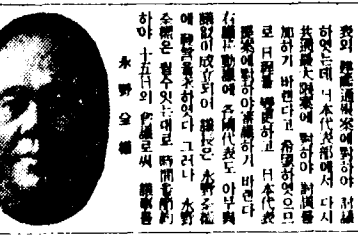 表의 
하엿는데 日本代表部에서 다시
共通最大限案에 對하야 討議를
加하기 바랜다고 希望하엿으므
로 日程을 變更하고 日本代表
提案에對하야審議하기 바랜다
右議에 各國代表도 아무異
議업이成立되어 議長은 永野全權
에 하엿다 그러나 永野
全權은 될수잇는대로 時間을節約
하야 十五日의 會議로써 議事를
永野全權